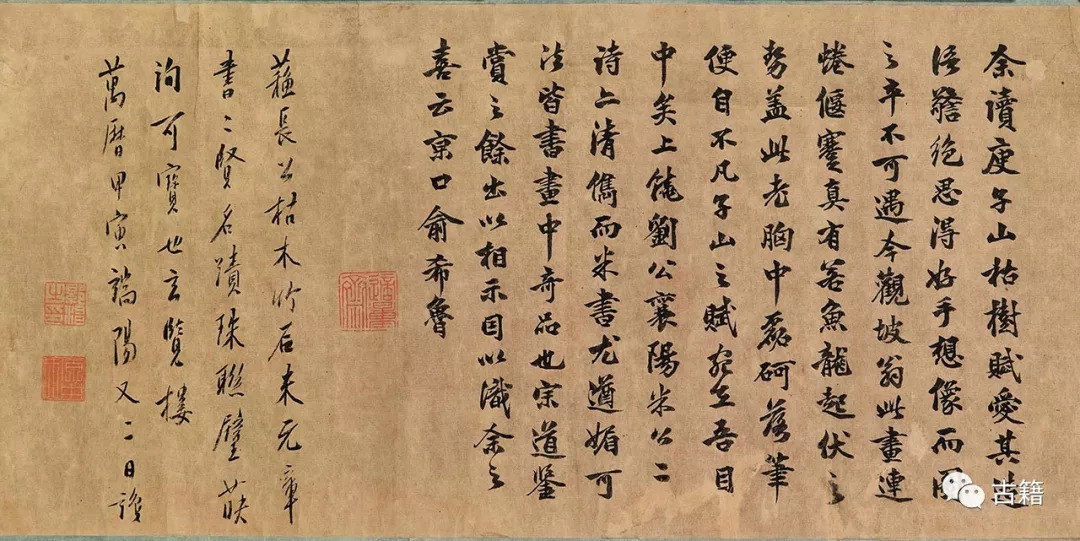 余讀庾子山枯樹賦愛其造
語警絶思得好手想像而圖
之卒不可遇今觀坡翁此畫連
蜷偃蹇真有若魚龍起伏之
勢盖此老胸中磊砢落筆
便自不凡子山之賦宛在吾目
中矣上饒劉公襄陽米公二
詩亦清儁而米書尤遒媚可
法皆書畫中奇品也宗道鑒
賞之餘出以相示因以識余之
喜云京口俞希魯
蘓長公枯木竹石米元章
書二賢名蹟珠聯璧映
詢可寳也玄覽樓
萬曆甲寅端陽又二日識
古籍